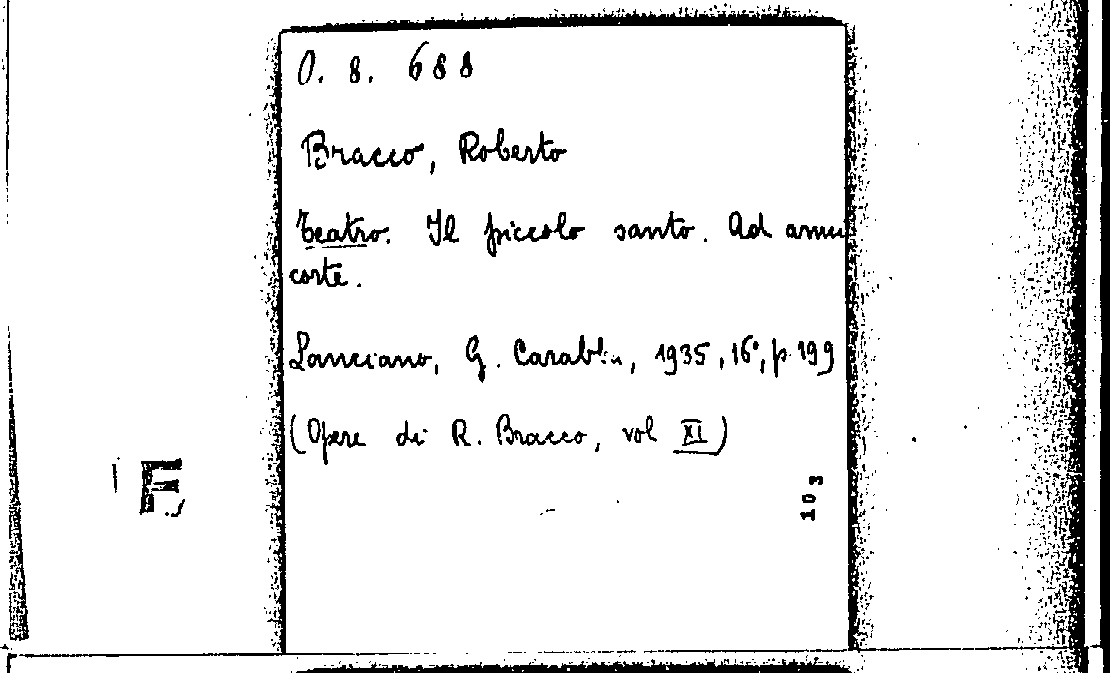 O. 8. 688
Bracco, Roberto
Teatro. Il piccolo santo. Ad armi
corte.
Lanciano, G. Carabba, 1935, 16°, p. 199
(Opere di R. Bracco, vol XI)
103